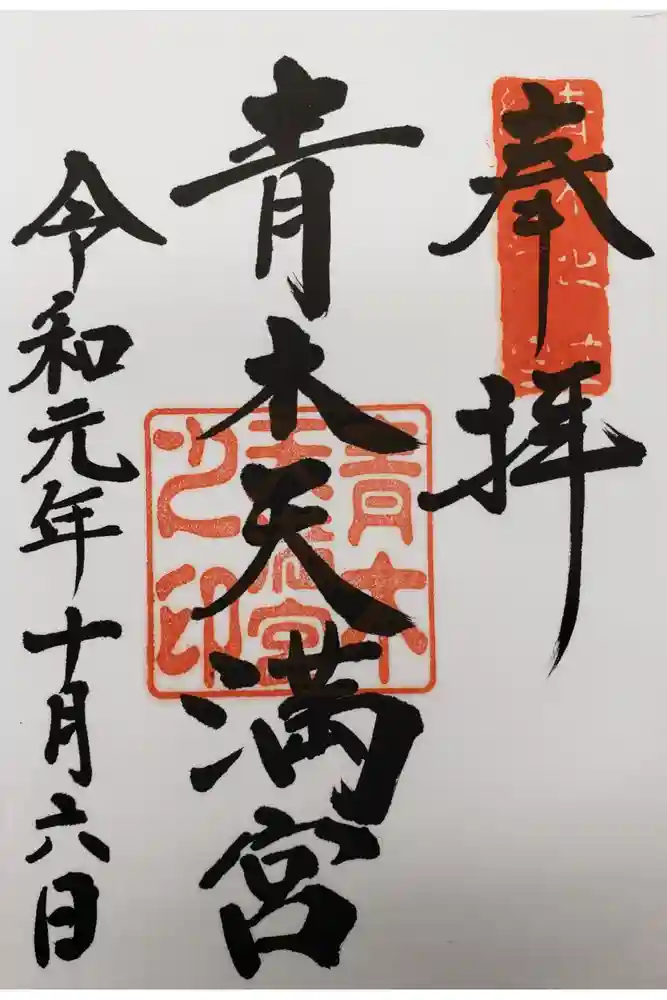 奉拝
青木天満宮
令和元年十月六日
青木天満宮之印